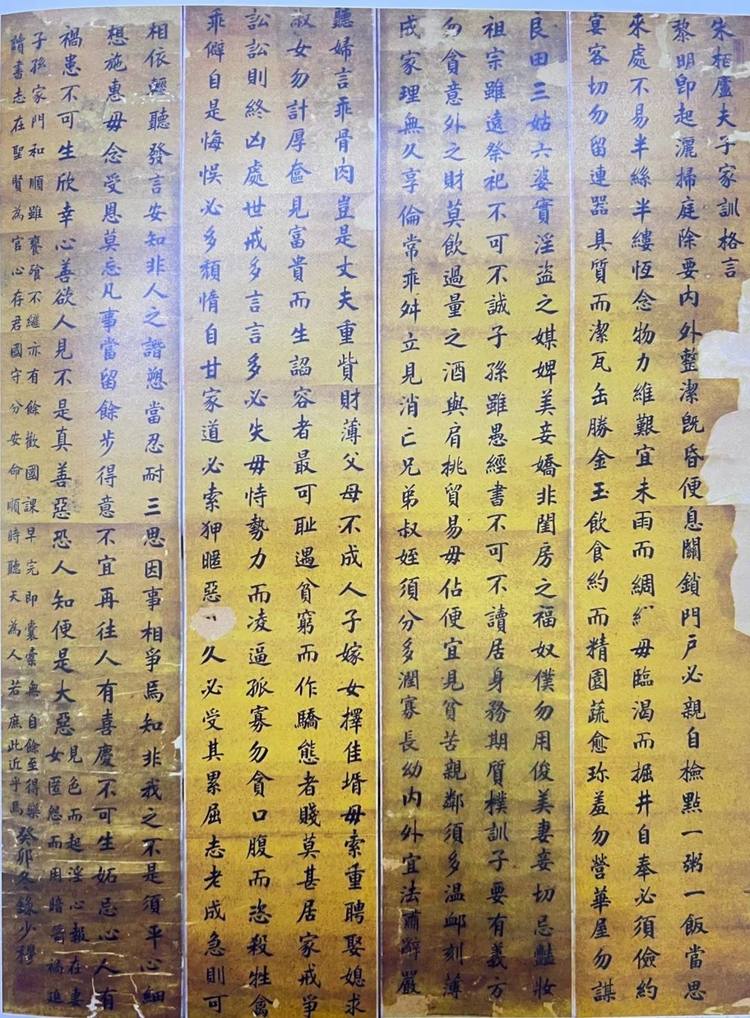 朱柏廬夫子家訓格言
黎明即起灑掃庭除要內外整潔既昏便息關鎖門戶必親自檢點一粥一飯當思
來處不易半絲半縷恆念物力維艱宜未雨而綢毋臨渴而掘井自奉必須儉約
宴客切勿留連器具質而潔瓦缶勝金玉飲食約而精園蔬愈珍羞勿營華屋勿謀
良田三姑六婆實淫盜之媒婢美妾嬌非閨房之福奴僕勿用俊美妻妾切忌豔妝
祖宗雖遠祭祀不可不誠子孫雖愚經書不可不讀居身務期質樸訓子要有義方
勿貪意外之財莫飲過量之酒與肩挑貿易毋佔便宜見貧苦親鄰須多溫卹刻薄
成家理無久享倫常乖舛立見消亡兄弟叔姪須分多潤寡長幼內外宜法肅辭嚴
聽婦言乖骨肉豈是丈夫重貲財薄父母不成人子嫁女擇佳壻毋索重聘娶媳求
淑女勿計厚奩見富貴而生諂容者最可恥遇貧窮而作驕態者賤莫甚居家戒爭
訟訟則終凶處世戒多言言多必失毋恃勢力而凌逼孤寡勿貪口腹而恣殺牲禽
乖僻自是悔悞必多頹惰自甘家道必索狎暱惡久必受其累屈志老成急則可
相依輕聽發言安知非人之譖愬當忍耐三思因事相爭焉知非我之不是須平心細
想施惠毋念受恩莫忘凡事當留餘步得意不宜再往人有喜慶不可生妬忌心人有
禍患不可生欣幸心善欲人見不是真善惡恐人知便是大惡
見色而起淫心報在妻
女匿怨而用暗箭禍延
子孫家門和順雖饔飧不繼亦有餘歡國課早完即囊橐無自餘至得樂
讀書志在聖賢為官心存君國守分安命順時聽天為人若庶此近乎焉
癸卯冬錄少穆